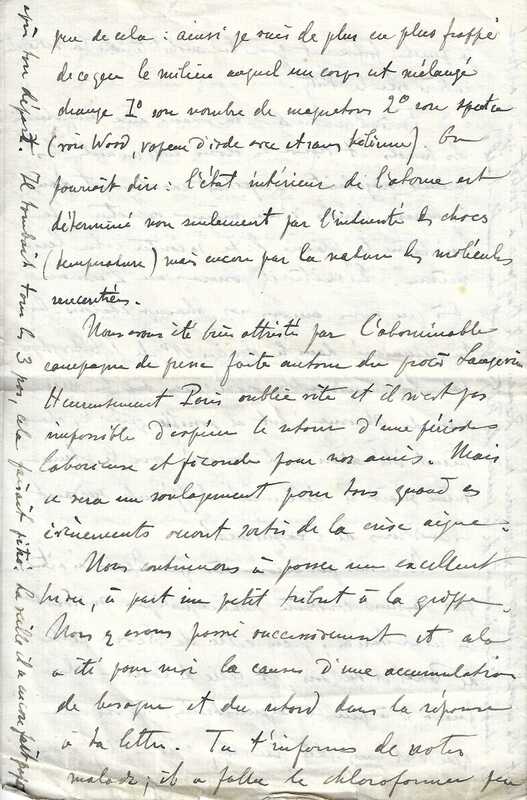 peu de cela : ainsi je suis de plus en plus frappé
de ce que le milieu auquel un corps est mélangé
change 1° son nombre de magnétons 2° son spectre
(voir Wood, vapeur d'iode avec et sans hélium). On
pourrait dire : l'état intérieur de l'atome est
déterminé non seulement par l'intensité des chocs
(température) mais encore par la nature des molécules
rencontrées.
Nous avons été bien attristé par l'abominable
campagne de presse faite autour du procès Langevin
Heureusement Paris oublie vite et il n'est pas
impossible d'espérer le retour d'une période
laborieuse et féconde pour nos amis. Mais
ce sera un soulagement pour tous quand es
évènements seront sortis de la crise aigue.
Nous continuons à passer un excellent
hiver, à part un petit tribut à la grippe.
Nous y avons passé successivement et cela
a été pour moi la causes d'une accumulation
de besogne et du retard dans la réponse
à ta lettre. Tu t'informes de notre
malade ; il a fallu le chloroformer peu
après ton départ. Il tombait tous les 3 pas, cela faisait pitié. La veille il a encore fait